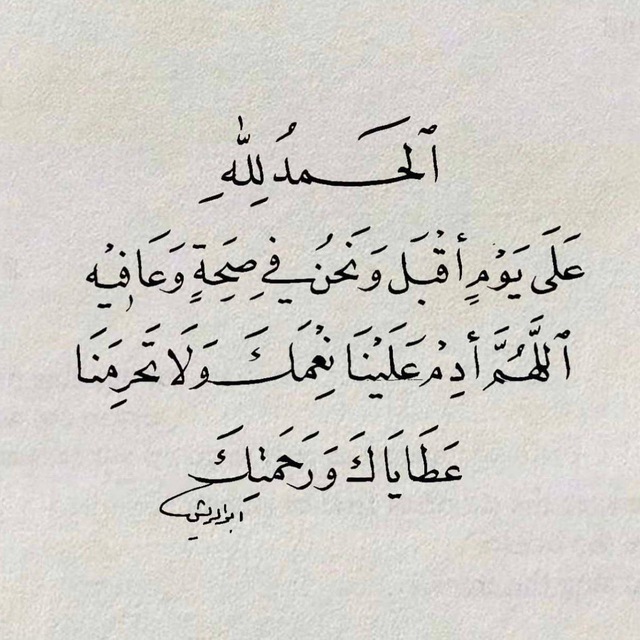 ٱلحَمدُ لِلّٰهِ
عَلَى يَوْمٍ أقْبَلَ وَنَحنُ في صِحَةٍ وَعَافِيْه
ٱللَّهُمَّ أدِمْ عَلَيْنَا نِعْمَكَ وَلَا تَحرِمَنَا
عَطَايَاكَ وَرَحمَتِكَ